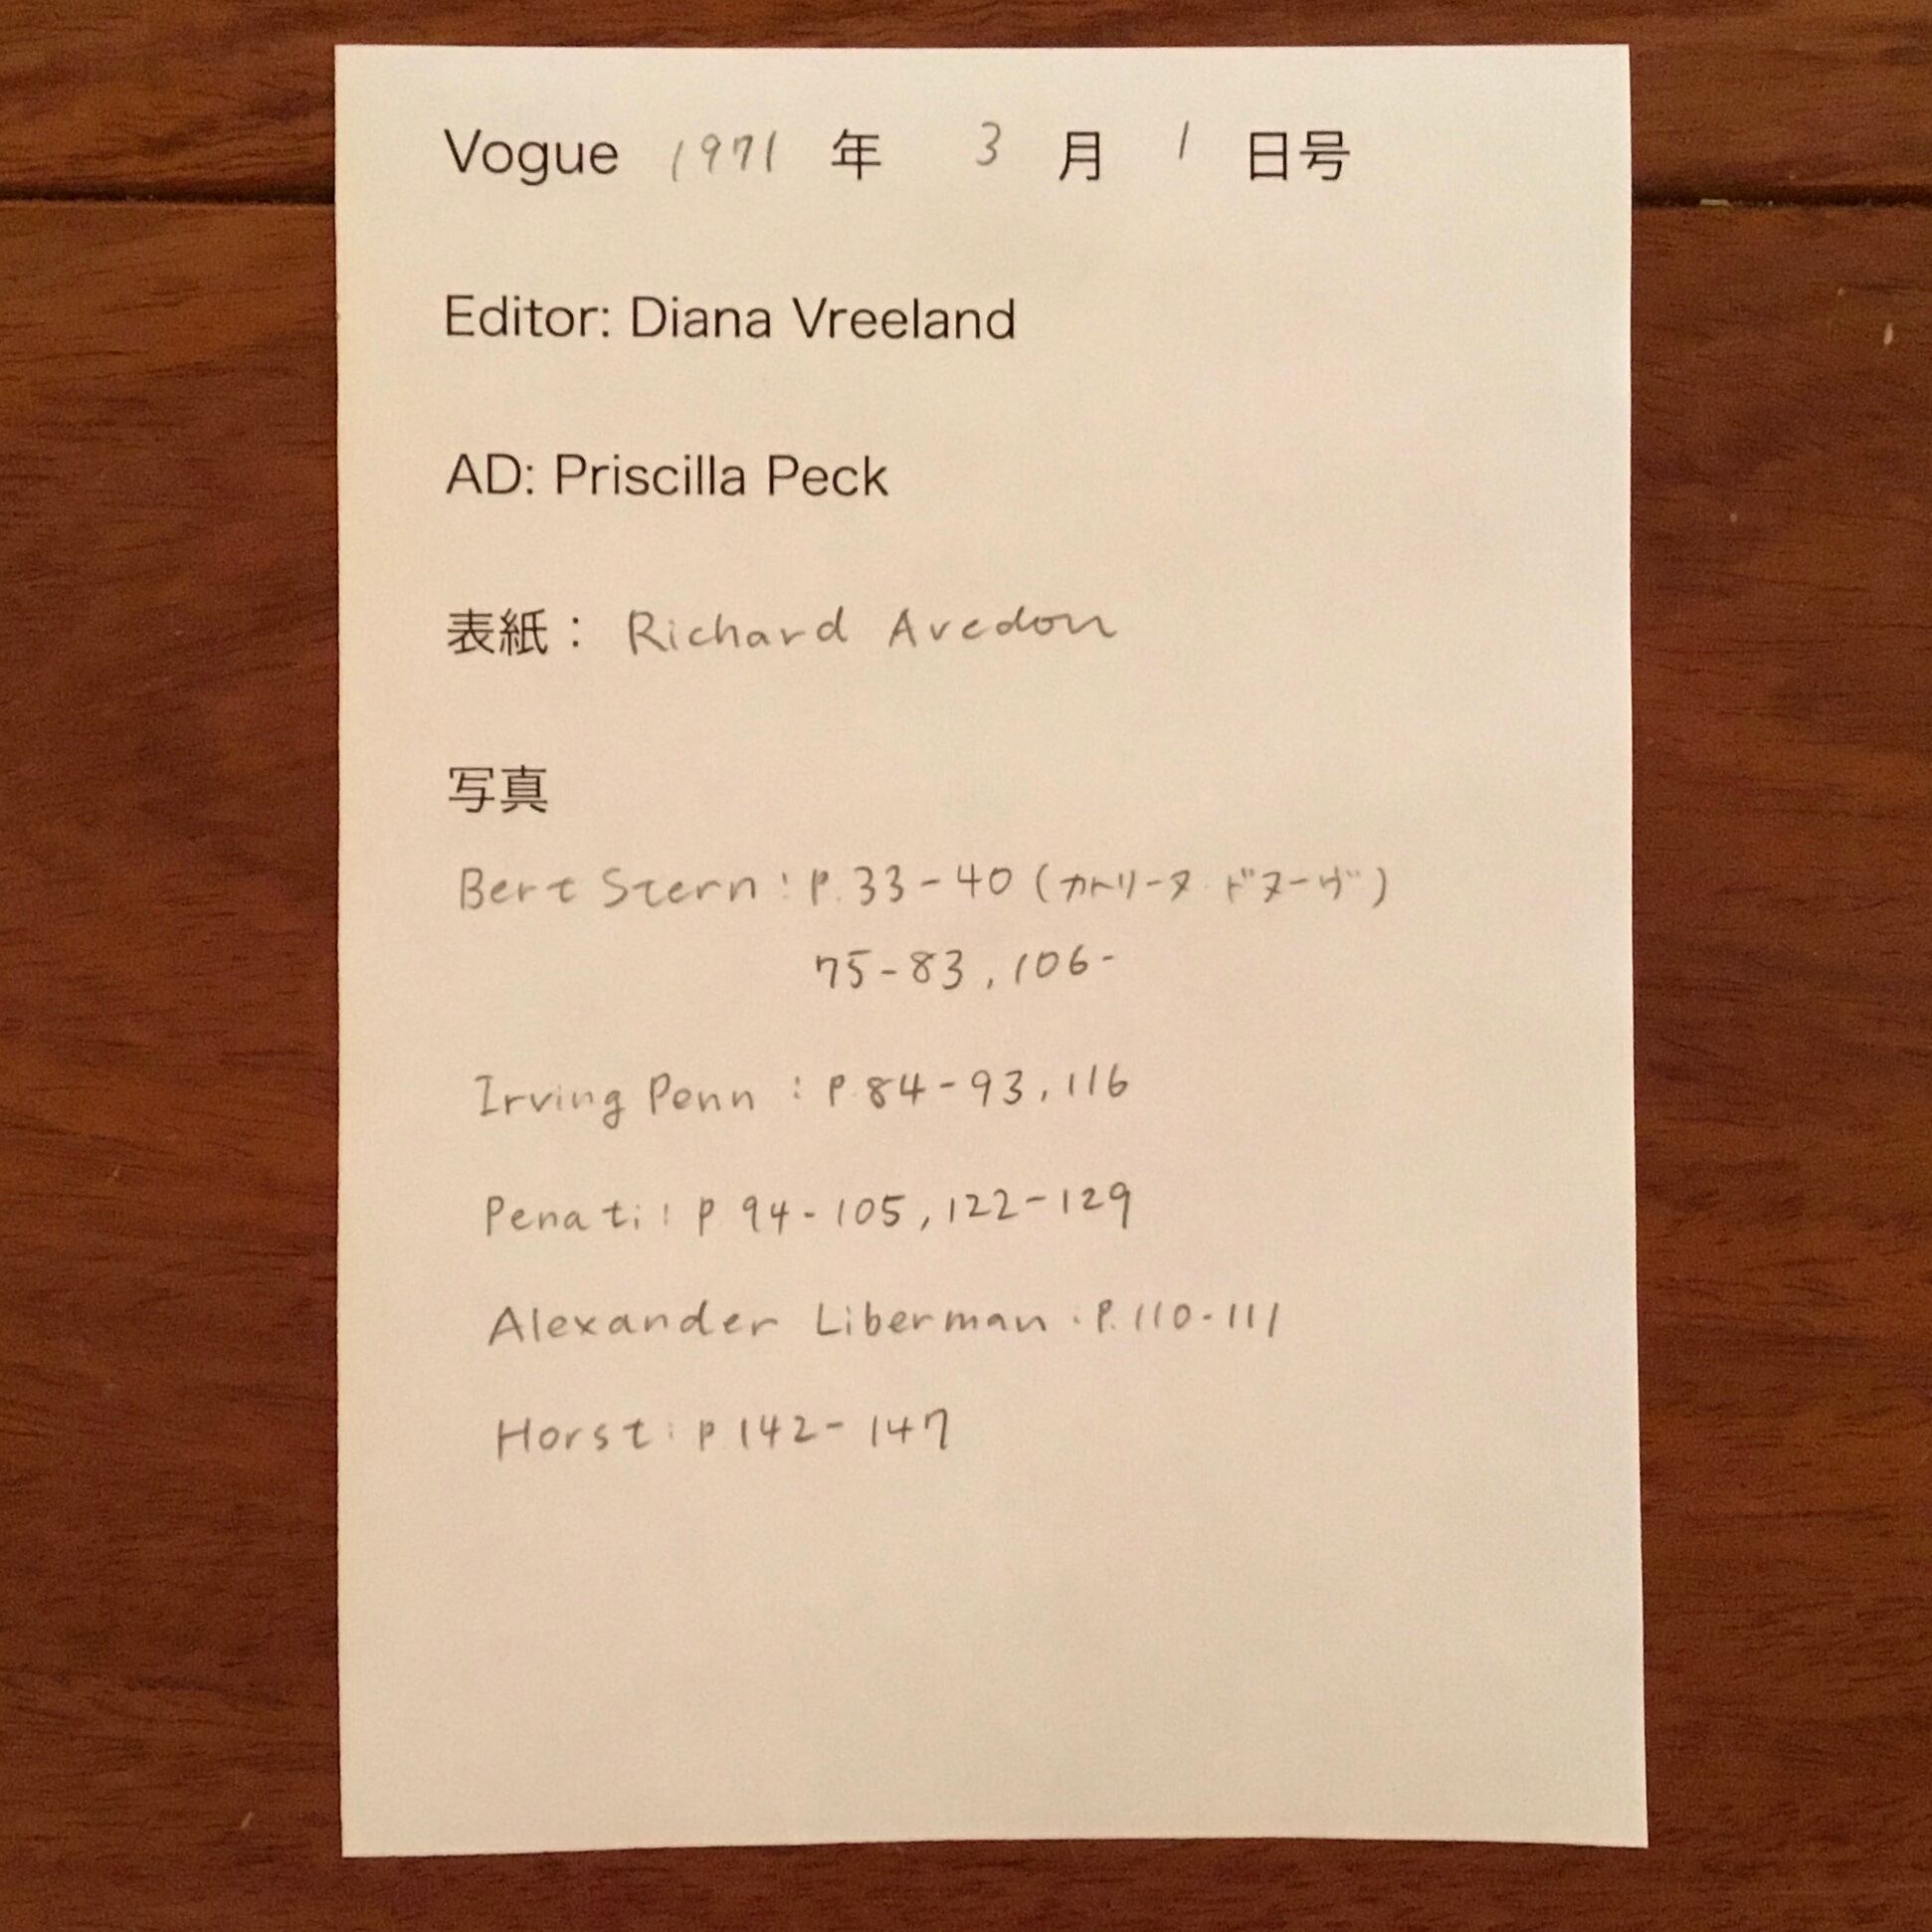 Vogue 1971 年 3 月 1 日号
Editor: Diana Vreeland
AD: Priscilla Peck
表紙： Richard Avedon
写真
Bert Stern : P.33-40 (カトリーヌ ドヌーヴ)
75-83, 106-
Irving Penn : P.84-93, 116
Penati : P 94-105, 122-129
Alexander Liberman : P.110-111
Horst : P 142-147